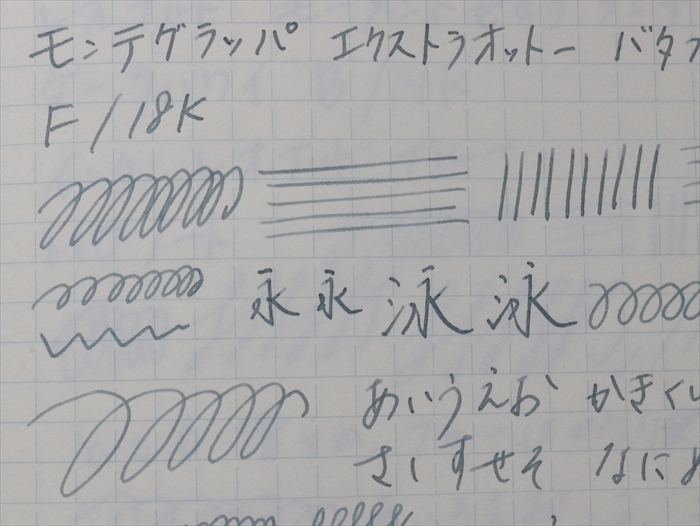 モンテグラッパ エクストラオットー バタ
F/18K
永 永 泳 泳
あいうえお かきく
さしすせそ なに